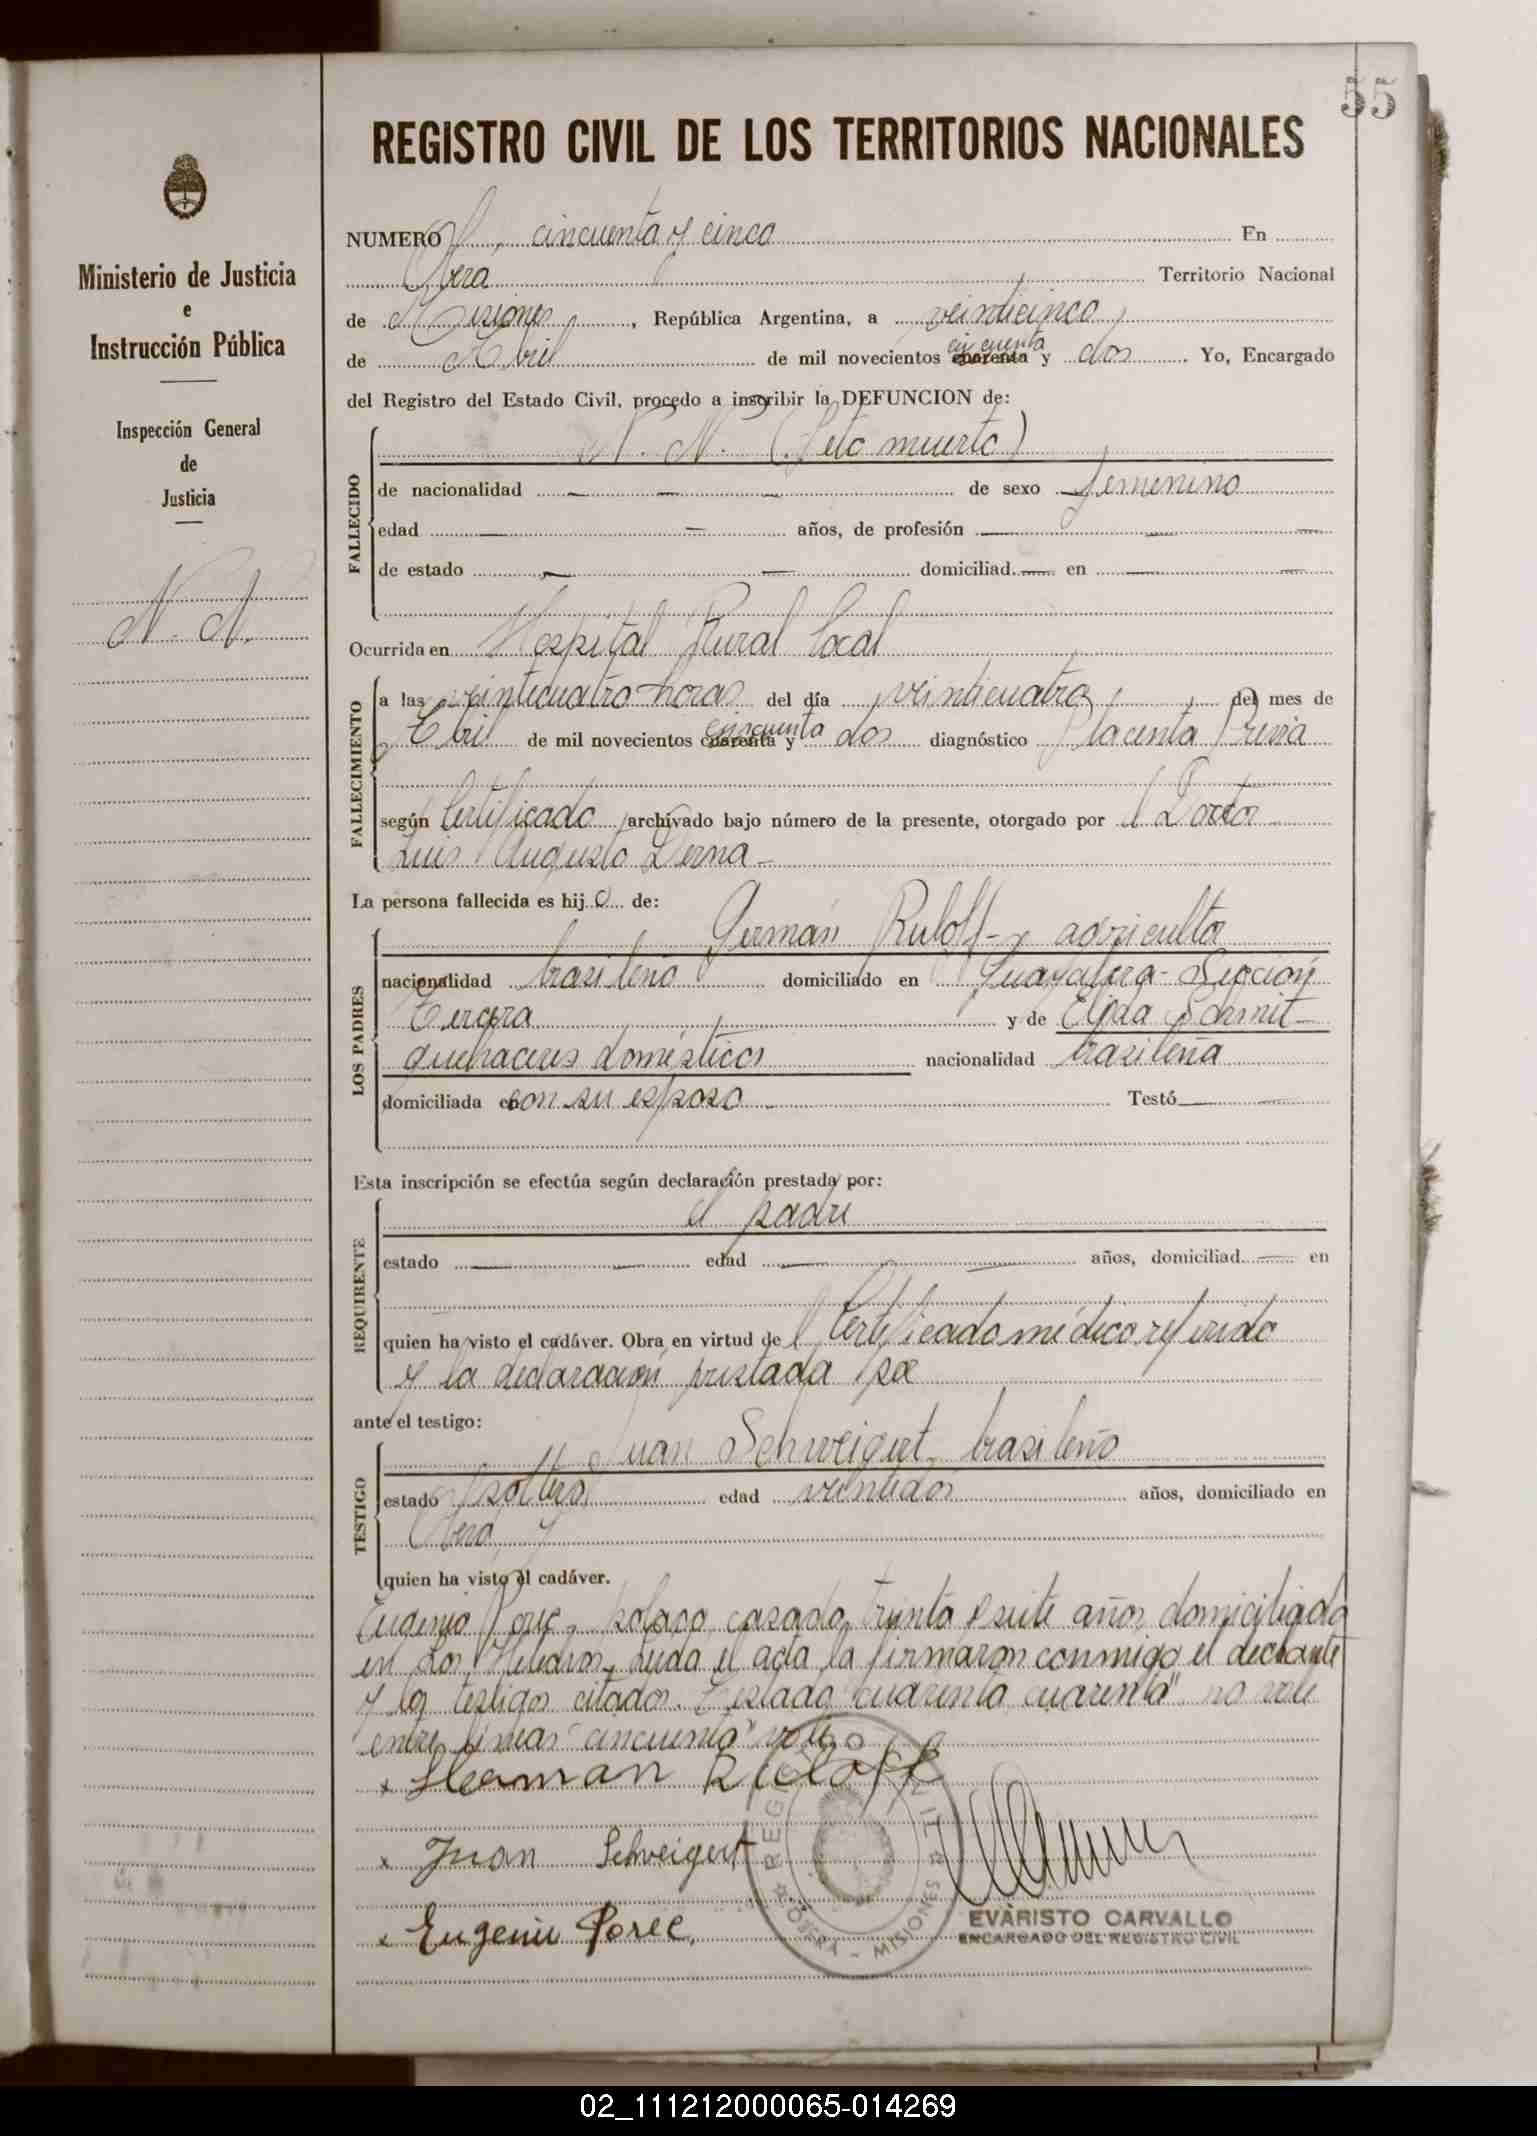 55
REGISTRO CIVIL DE LOS TERRITORIOS NACIONALES
Ministerio de Justicia
e
Instrucción Pública
Inspección General
de
Justicia
N. N.
NUMERO cincuenta y cinco En
Oberá Territorio Nacional
de Misiones, República Argentina, a veinticinco
de Abril de mil novecientos cuarenta cincuenta y dos. Yo, Encargado
del Registro del Estado Civil, procedo a inscribir la DEFUNCION de:
FALLECIDO
N. N. (Feto muerto)
de nacionalidad — — — de sexo femenino
edad — — años, de profesión — — —
de estado — — domiciliad — en — —
Ocurrida en Hospital Rural local
FALLECIMIENTO
a las veinticuatro horas del día veinticuatro del mes de
Abril de mil novecientos cuarenta cincuenta y dos diagnóstico Placenta Previa
según Certificado archivado bajo número de la presente, otorgado por el Doctor
Luis Augusto Derna -
La persona fallecida es hijo de:
LOS PADRES
Germán Ruloff - agricultor
nacionalidad brasileño domiciliado en Guayabera - Sección
Tercera y de Elida Schmit -
quehaceres domésticos nacionalidad brasileña
domiciliada con su esposo - Testó — —
Esta inscripción se efectúa según declaración prestada por:
REQUIRENTE
el padre
estado — — edad — — años, domiciliad — en
quien ha visto el cadáver. Obra en virtud del Certificado médico referido
y la declaración prestada por
ante el testigo:
TESTIGO
Juan Schweigert, brasileño
estado soltero edad veintidos años, domiciliado en
Oberá y
quien ha visto el cadáver.
Eugenio Porec, polaco, casado, treinta y siete años, domiciliado
en Los Helechos. Leída el acta la firmaron conmigo el declarante
y los testigos citados. Testado "cuarenta, cuarenta" no vale
entre líneas "cincuenta" vale
x Herman Ruloff
x Juan Schweigert
x Eugeniu Porec.
REGISTRO CIVIL
OBERA - MISIONES
EVARISTO CARVALLO
ENCARGADO DEL REGISTRO CIVIL
02_111212000065-014269